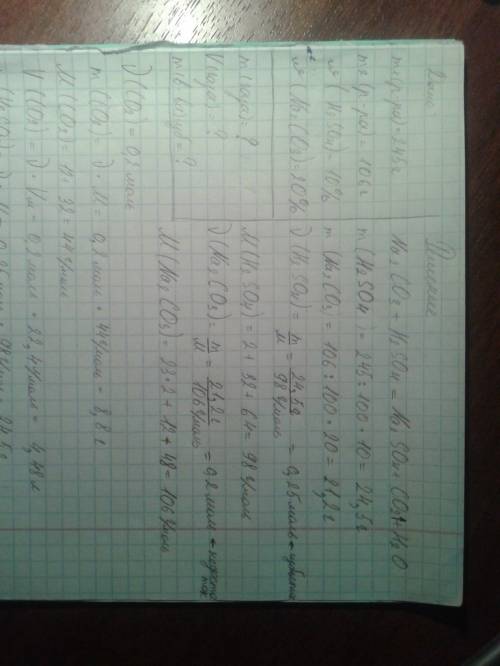 Дано:
m₁(р-ра) = 245г
m₂(р-ра) = 106г
(H₂SO₄) = 10%
(Na₂CO₃) = 20%
m(газа) = ?
V(газа) = ?
Решение
Na₂CO₃ + H₂SO₄ = Na₂SO₄ + CO₂↑ + H₂O
m(H₂SO₄) = 245 : 100 * 10 = 24,5г
m(Na₂CO₃) = 106 : 100 * 20 = 21,2г
ν(H₂SO₄) = m/M = 24,5г/98г/моль = 0,25моль - избыток
M(H₂SO₄) = 2 + 32 + 64 = 98г/моль
ν(Na₂CO₃) = m/M = 21,2г/106г/моль = 0,2 моль -
M(Na₂CO₃) = 23*2 + 12 + 48 = 106г/моль
ν(CO₂) = 0,2моль
m(CO₂) = ν · M = 0,2моль * 44г/моль = 8,8г
M(CO₂) = 12 + 32 = 44г/моль
V(CO₂) = ν · Vм = 0,2моль * 22,4г/моль = 4,48л